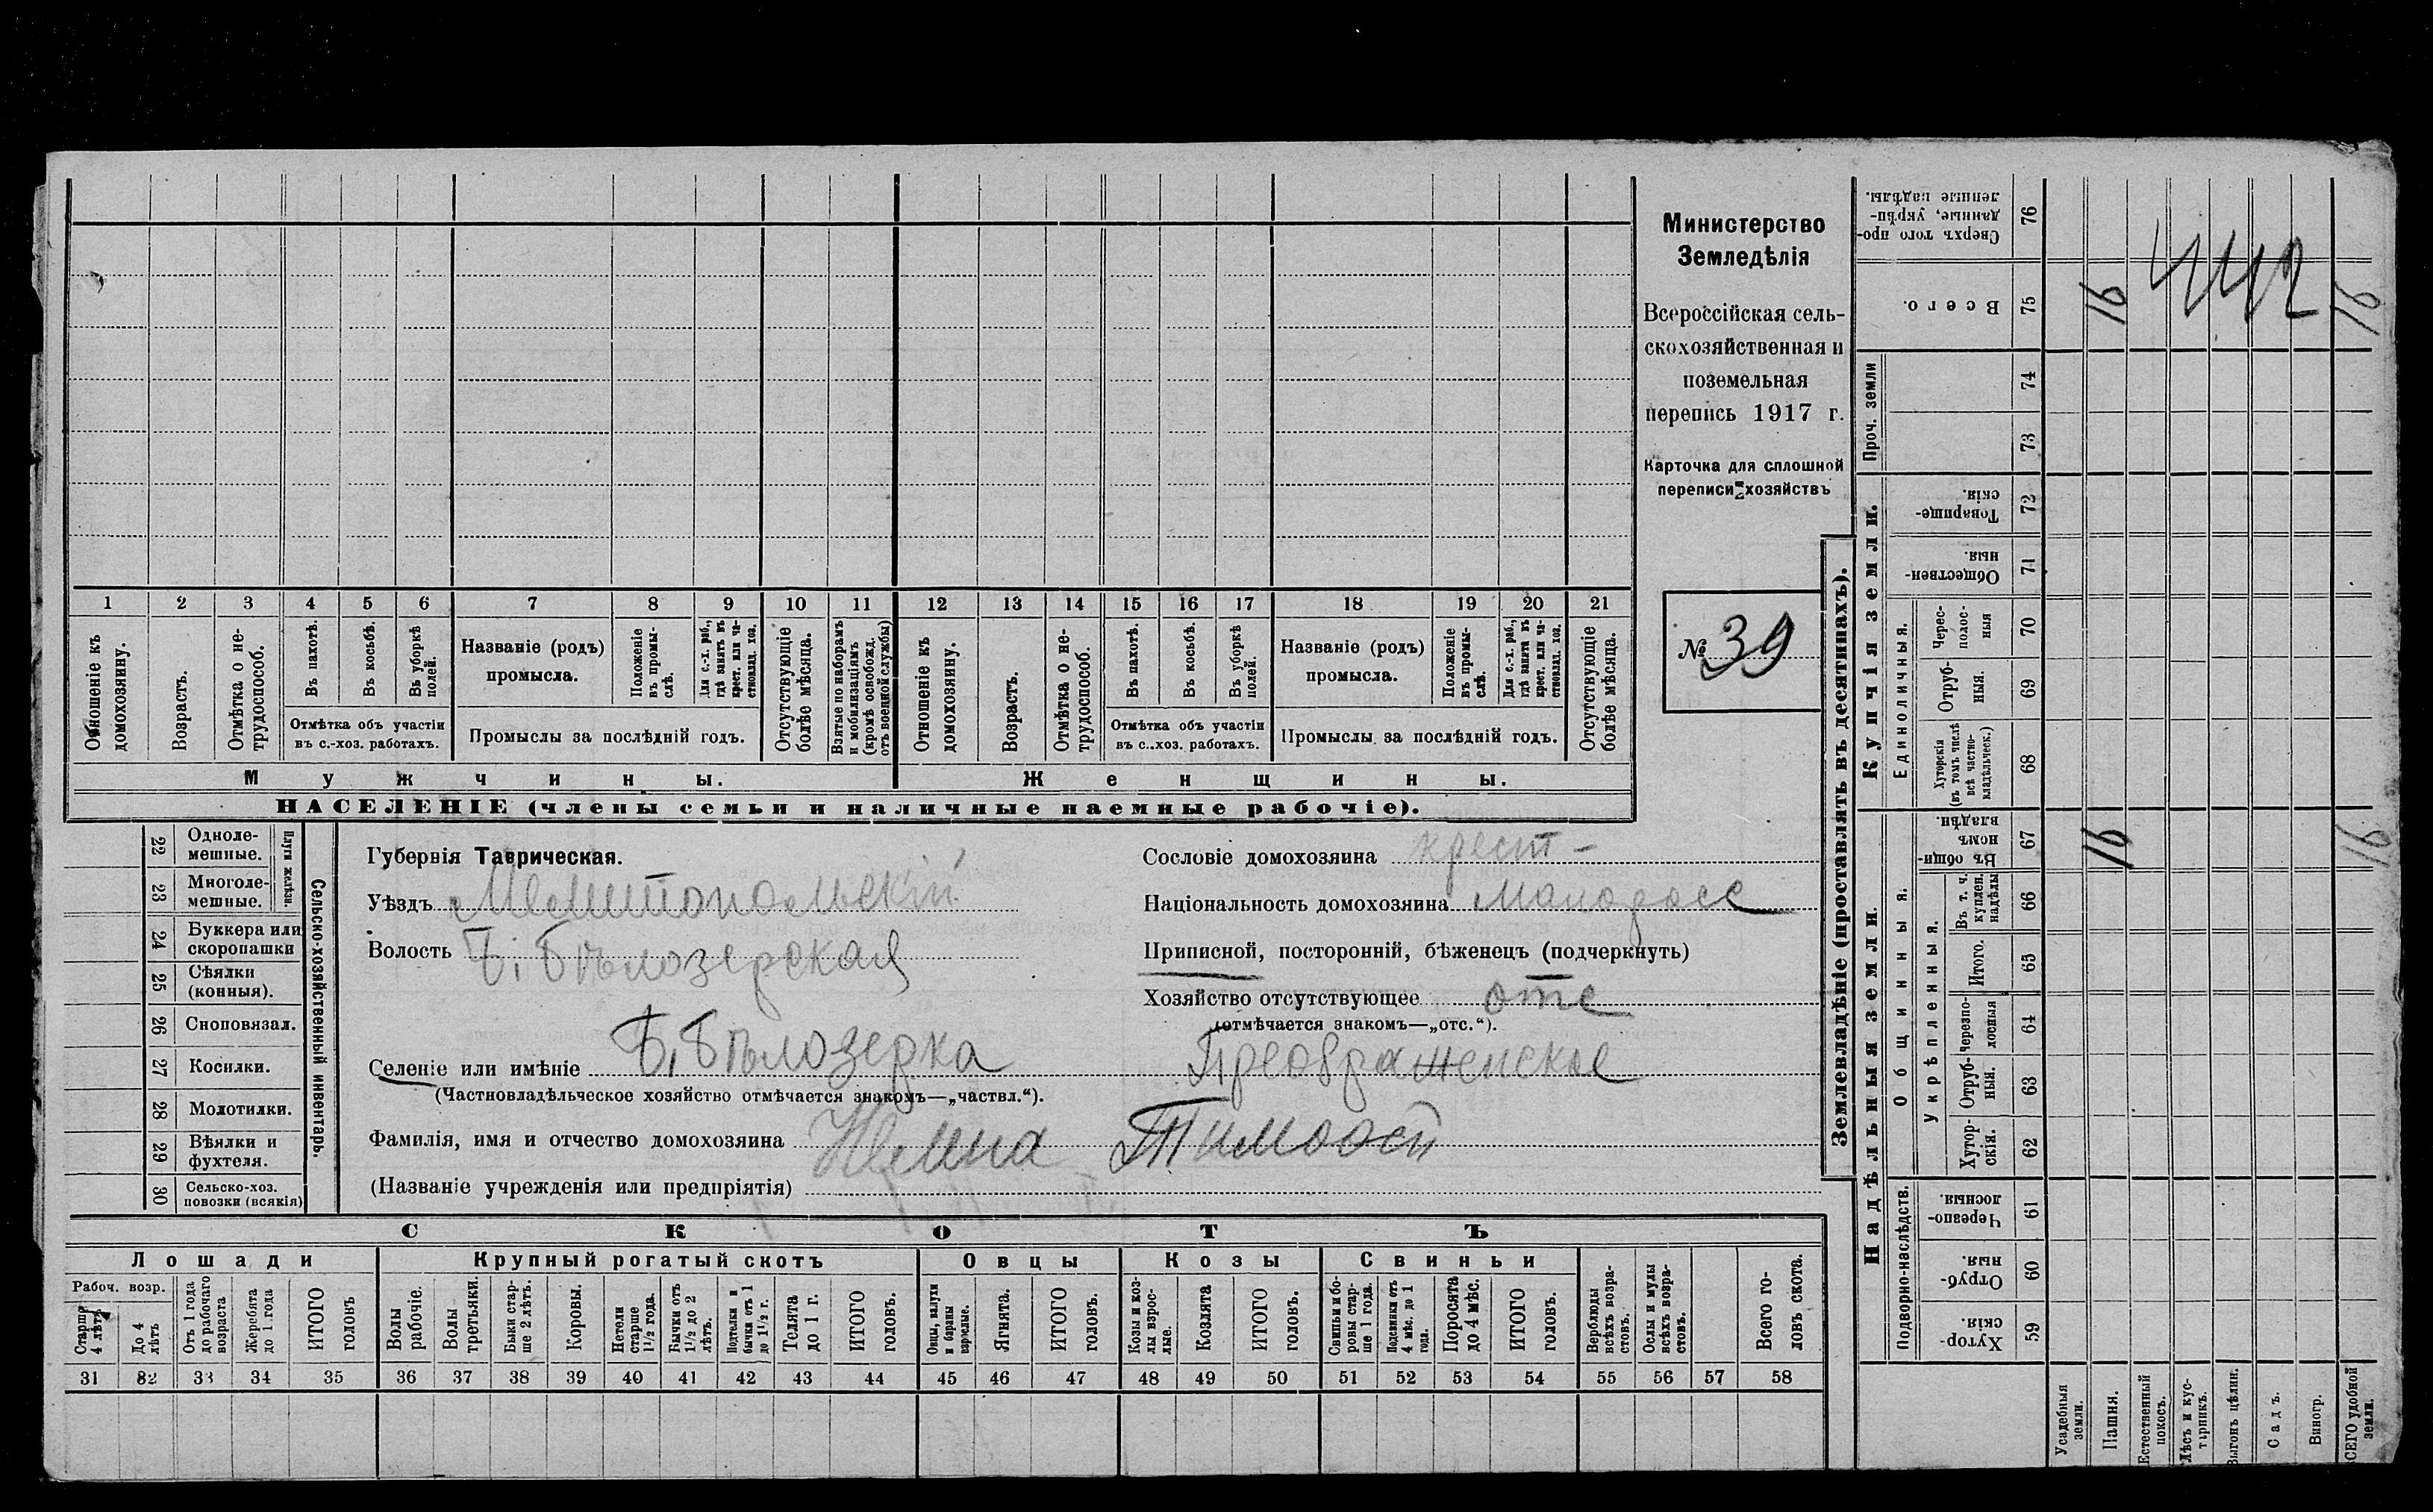 Министерство
Земледѣлія
Всероссійская сель-
скохозяйственная и
поземельная
перепись 1917 г.
Карточка для сплошной
переписи хозяйствъ
№ 39
1 2 3 4 5 6 7 8 9 10 11 12 13 14 15 16 17 18 19 20 21
Отношеніе къ домохозяину.
Возрастъ.
Отмѣтка о не-трудоспособ.
Въ пахотѣ.
Въ косьбѣ.
Въ уборкѣ полей.
Отмѣтка объ участіи
въ с.-хоз. работахъ.
Названіе (родъ)
промысла.
Положеніе въ промы-слѣ.
Для с.-х. раб., гдѣ занятъ въ крест. или ча-стновлад. хоз.
Промыслы за послѣдній годъ.
Отсутствующіе болѣе мѣсяца.
Взятые по наборамъ и мобилизаціямъ (кромѣ освобожд. отъ военной службы)
Отношеніе къ домохозяину.
Возрастъ.
Отмѣтка о не-трудоспособ.
Въ пахотѣ.
Въ косьбѣ.
Въ уборкѣ полей.
Отмѣтка объ участіи
въ с.-хоз. работахъ.
Названіе (родъ)
промысла.
Положеніе въ промы-слѣ.
Для с.-х. раб., гдѣ занята въ крест. или ча-стновлад. хоз.
Промыслы за послѣдній годъ.
Отсутствующіе болѣе мѣсяца.
Мужчины. Женщины.
НАСЕЛЕНІЕ (члены семьи и наличные наемные рабочіе).
Сельско-хозяйственный инвентарь.
Плуги желѣзн.
22 Одноле-мешные.
23 Многоле-мешные.
24 Буккера или скоропашки
25 Сѣялки (конныя).
26 Сноповязал.
27 Косилки.
28 Молотилки.
29 Вѣялки и фухтеля.
30 Сельско-хоз. повозки (всякія)
Губернія Таврическая.
Уѣздъ Мелитопольскій
Волость Б. Бѣлозерская
Селеніе или имѣніе Б. Бѣлозерка Преображенское
(Частновладѣльческое хозяйство отмѣчается знакомъ—„частвл.“).
Фамилія, имя и отчество домохозяина Тимофей
(Названіе учрежденія или предпріятія)
Сословіе домохозяина крест-
Національность домохозяина малоросс
Приписной, посторонній, бѣженецъ (подчеркнуть)
Хозяйство отсутствующее отс
(отмѣчается знакомъ—„отс.“).
СКОТЪ
Лошади Крупный рогатый скотъ Овцы Козы Свиньи
Рабоч. возр.
Старше 4 лѣтъ
До 4 лѣтъ
Отъ 1 года до рабочаго возраста
Жеребята до 1 года
ИТОГО головъ
Волы рабочіе.
Волы третьяки.
Быки стар-ше 2 лѣтъ.
Коровы.
Нетели старше 1½ года.
Бычки отъ 1½ до 2 лѣтъ.
Подтелки и бычки отъ 1 до 1½ г.
Телята до 1 г.
ИТОГО головъ.
Овцы, валухи и бараны взрослые.
Ягнята.
ИТОГО головъ.
Козы и коз-лы взрос-лые.
Козлята
ИТОГО головъ.
Свиньи и бо-ровы стар-ше 1 года.
Подсвинки отъ 4 мѣс. до 1 года.
Поросята до 4 мѣс.
ИТОГО головъ.
Верблюды всѣхъ возра-стовъ.
Ослы и мулы всѣхъ возра-стовъ.
Всего го-ловъ скота.
31 32 33 34 35 36 37 38 39 40 41 42 43 44 45 46 47 48 49 50 51 52 53 54 55 56 57 58
Землевладѣніе (проставлять въ десятинахъ).
Надѣльныя земли. Купчія земли. Проч. земли
Подворно-наслѣдств.
Общинныя.
Укрѣпленныя.
Единоличныя.
Хутор-скія. 59
Отруб-ныя. 60
Черезпо-лосныя. 61
Хутор-скія. 62
Отруб-ныя. 63
Черезпо-лосныя 64
Итого. 65
Въ т. ч. куплен. надѣлы 66
Въ общи-номъ владѣн. 67
Хуторскія (въ томъ числѣ всѣ частно-владѣльческ.) 68
Отруб-ныя. 69
Черес-полос-ныя 70
Обществен-ныя. 71
Товарище-скія. 72
73
74
Всего. 75
Сверхъ того про-данные, укрѣп-ленные надѣлы. 76
Усадебныя земли.
Пашня.
Естественный покосъ.
Лѣсъ и кус-тарникъ.
Выгонъ цѣлин.
Садъ.
Виногр.
ВСЕГО удобной земли.
16 16
16 16